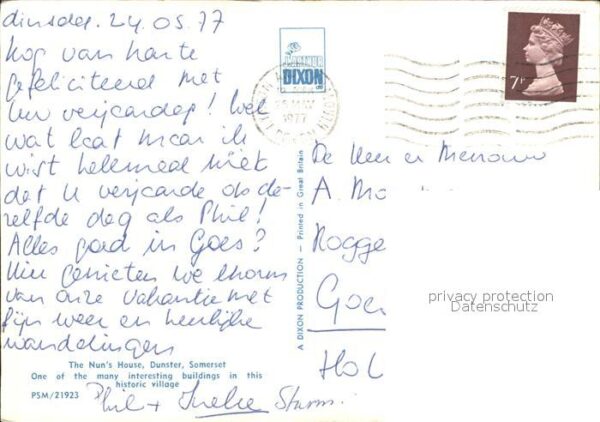 dinsdag. 24.05.77
Nog van harte
gefeliciteerd met
Uw verjaardag! Wel
wat laat maar ik
wist helemaal niet
dat U verjaarde de-
zelfde dag als Phil!
Alles goed in Goes?
Hier genieten we enorm
van onze vakantie met
fijn weer en heerlijke
wandelingen
Phil +
ARTHUR
DIXON
1977
7P
De Heer en Mevrouw
A. Mo
Rogge
Goe
Hol
privacy protection
Datenschutz
A DIXON PRODUCTION – Printed in Great Britain
The Nun's House, Dunster, Somerset
One of the many interesting buildings in this
historic village
PSM/21923